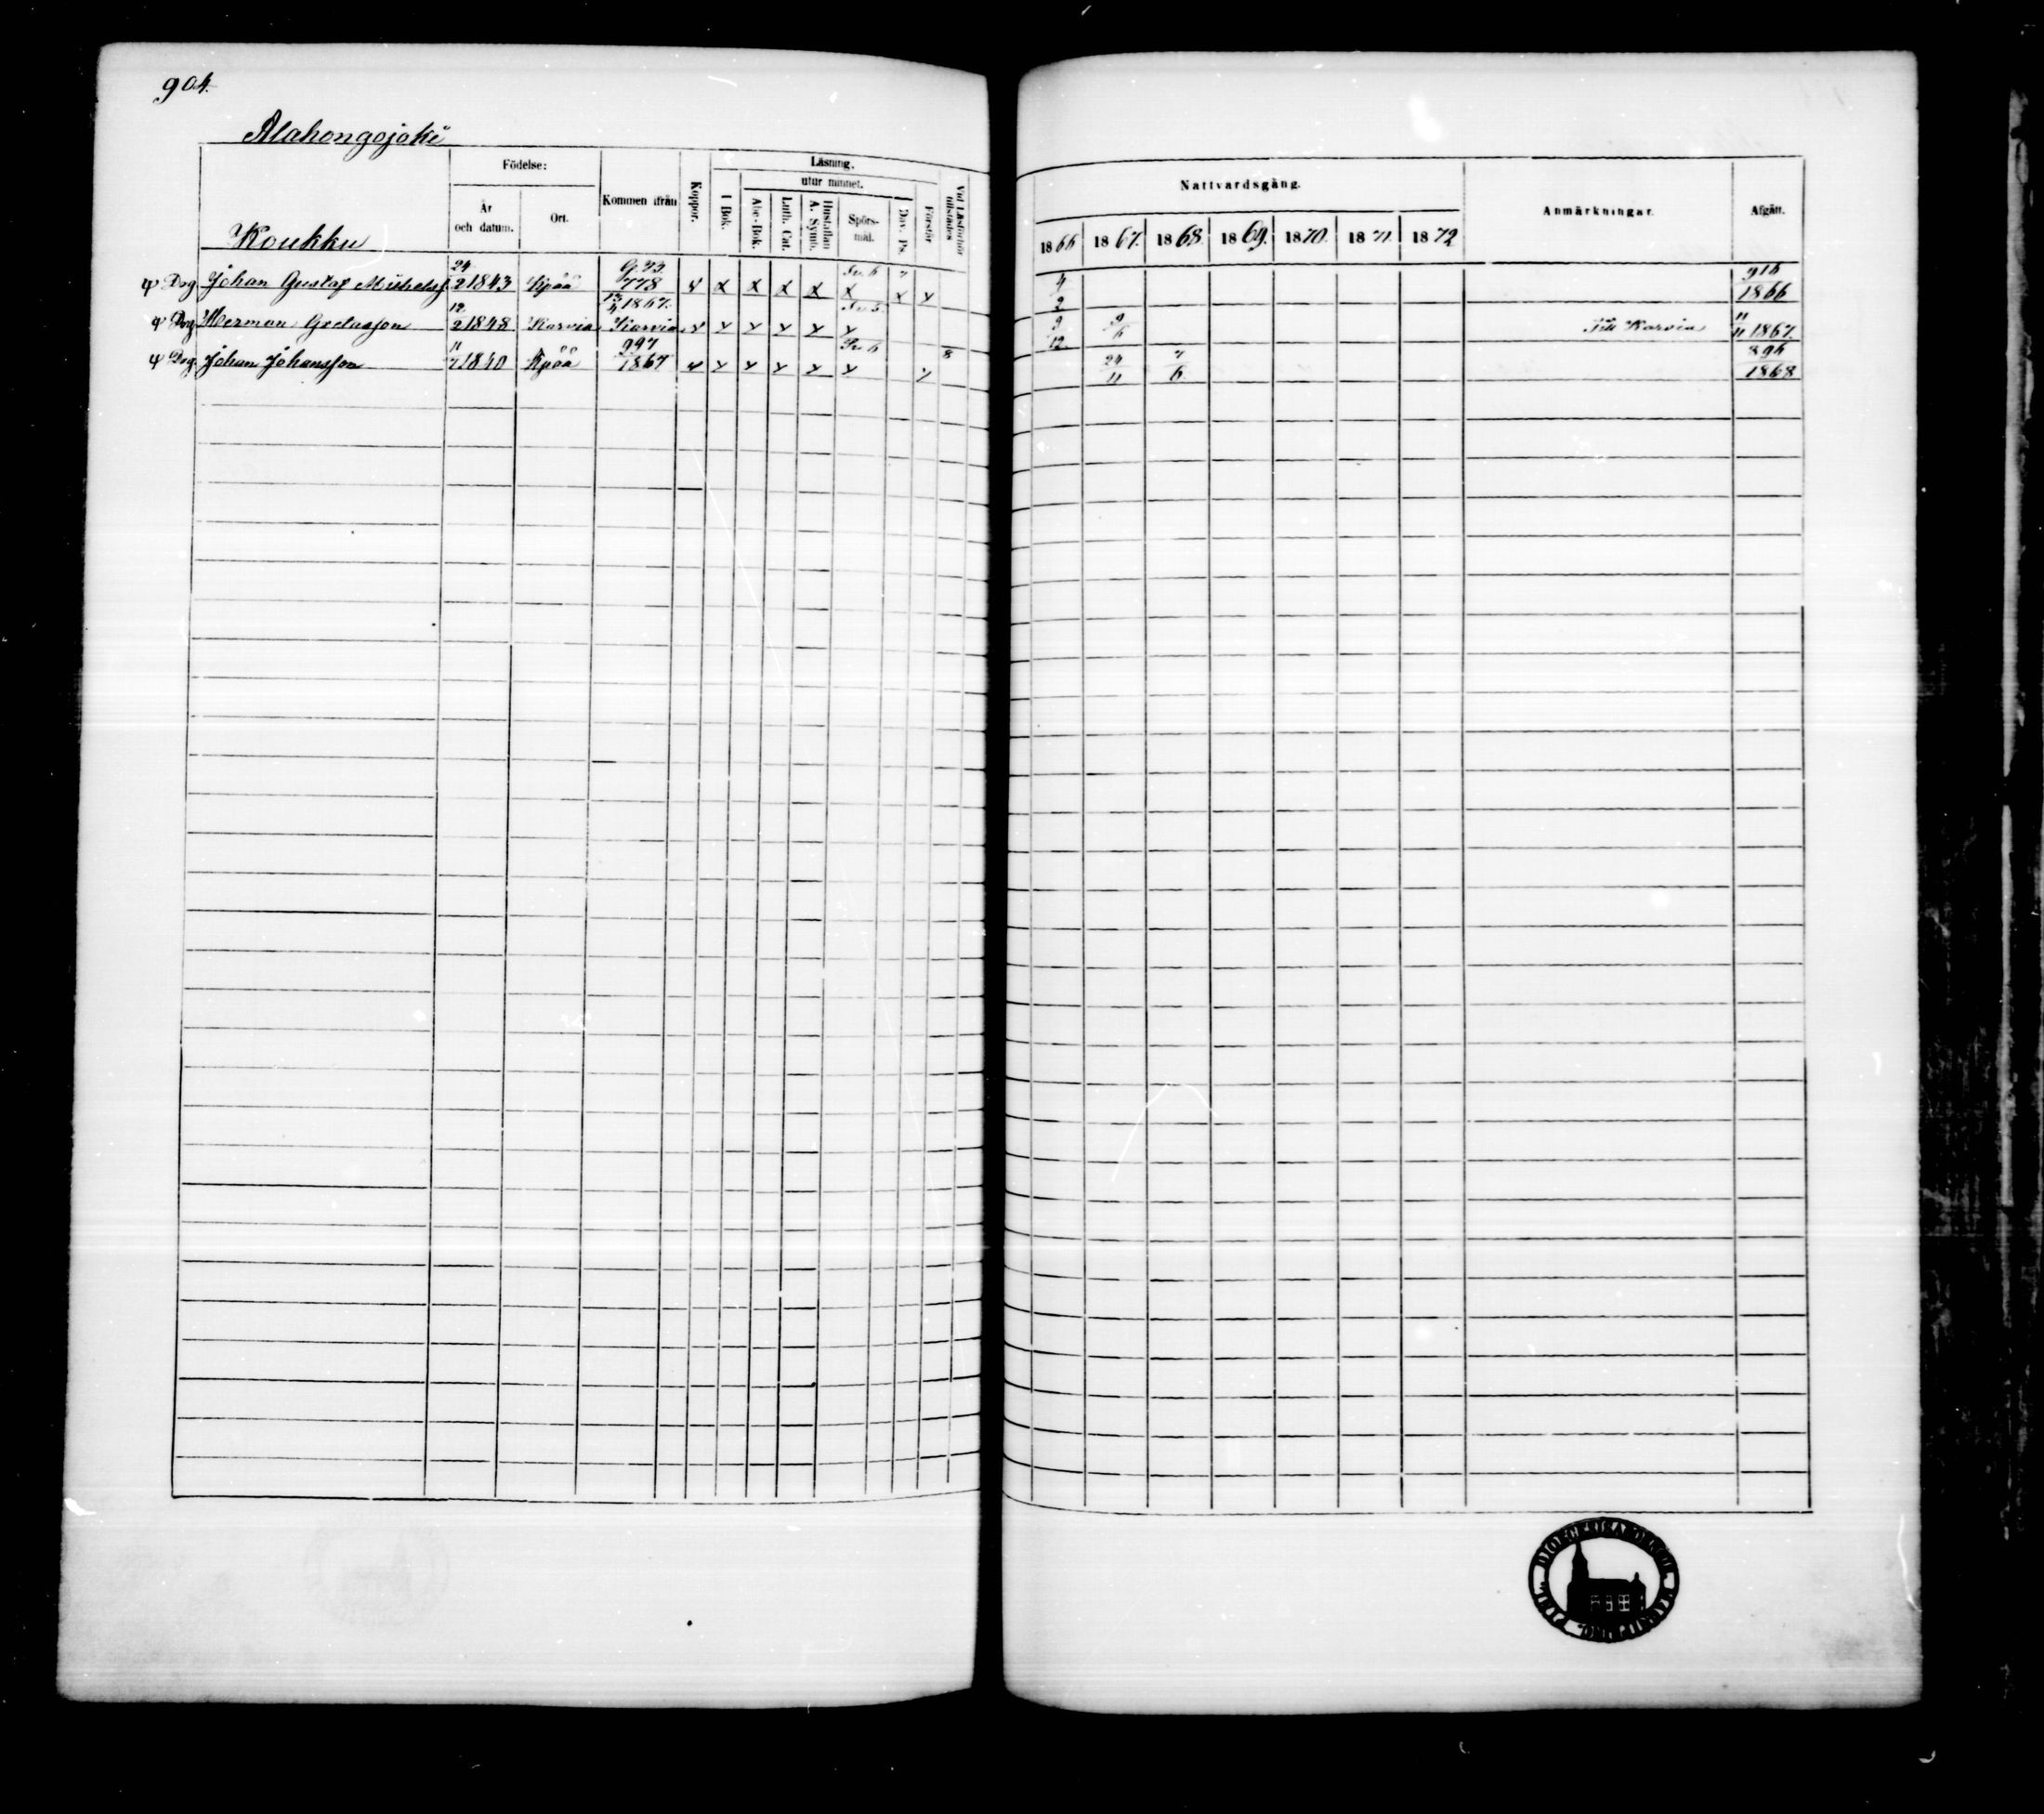 904.
Alahongojoki
Koukku
Födelse:
År och datum.
Ort.
Kommen ifrån
Koppor.
Läsning.
I Bok.
utur minnet.
Abc-Bok.
Luth. Cat.
Hustaflan A. Symb.
Spörsmål.
Dav. Ps.
Förstår
Vid Läsförhör tillstädes
Nattvardsgång.
1866 1867. 1868. 1869. 1870. 1871. 1872
Anmärkningar.
Afgått.
Dog Johan Gustaf Michelsf 24/2 1843 Kpää G. 73. 778 x x x x x Sv. 6 x 7 x 4/2 916 1866
Dog Herman Gretasson 12/2 1848 Karvia 13/4 1867. Karvia x x x x Sv. 5 9/12 9/6 Till Karvia 11/11 1867.
Dog Johan Johansson 11/7 1840 Kpää 997 1867 x x x x Sv. 6 8 24/11 7/6 896 1868